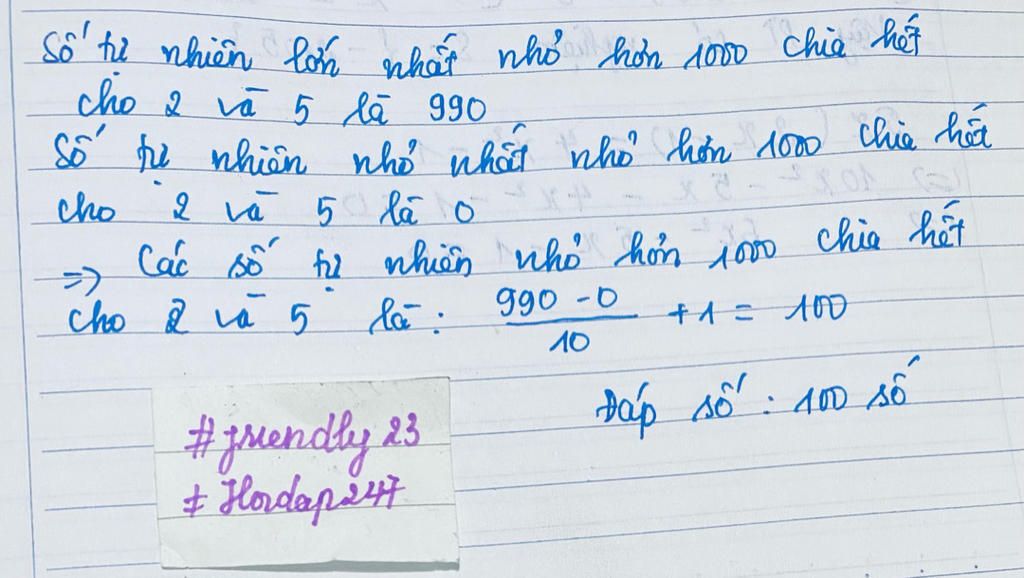 Số tự nhiên lớn nhất nhỏ hơn 1000 chia hết
cho 2 và 5 là 990
Số tự nhiên nhỏ nhất nhỏ hơn 1000 chia hết
cho 2 và 5 là 0
=> Các số tự nhiên nhỏ hơn 1000 chia hết
cho 2 và 5 là : (990 - 0)/10 + 1 = 100
Đáp số : 100 số
#friendly 23
# Hoidap247